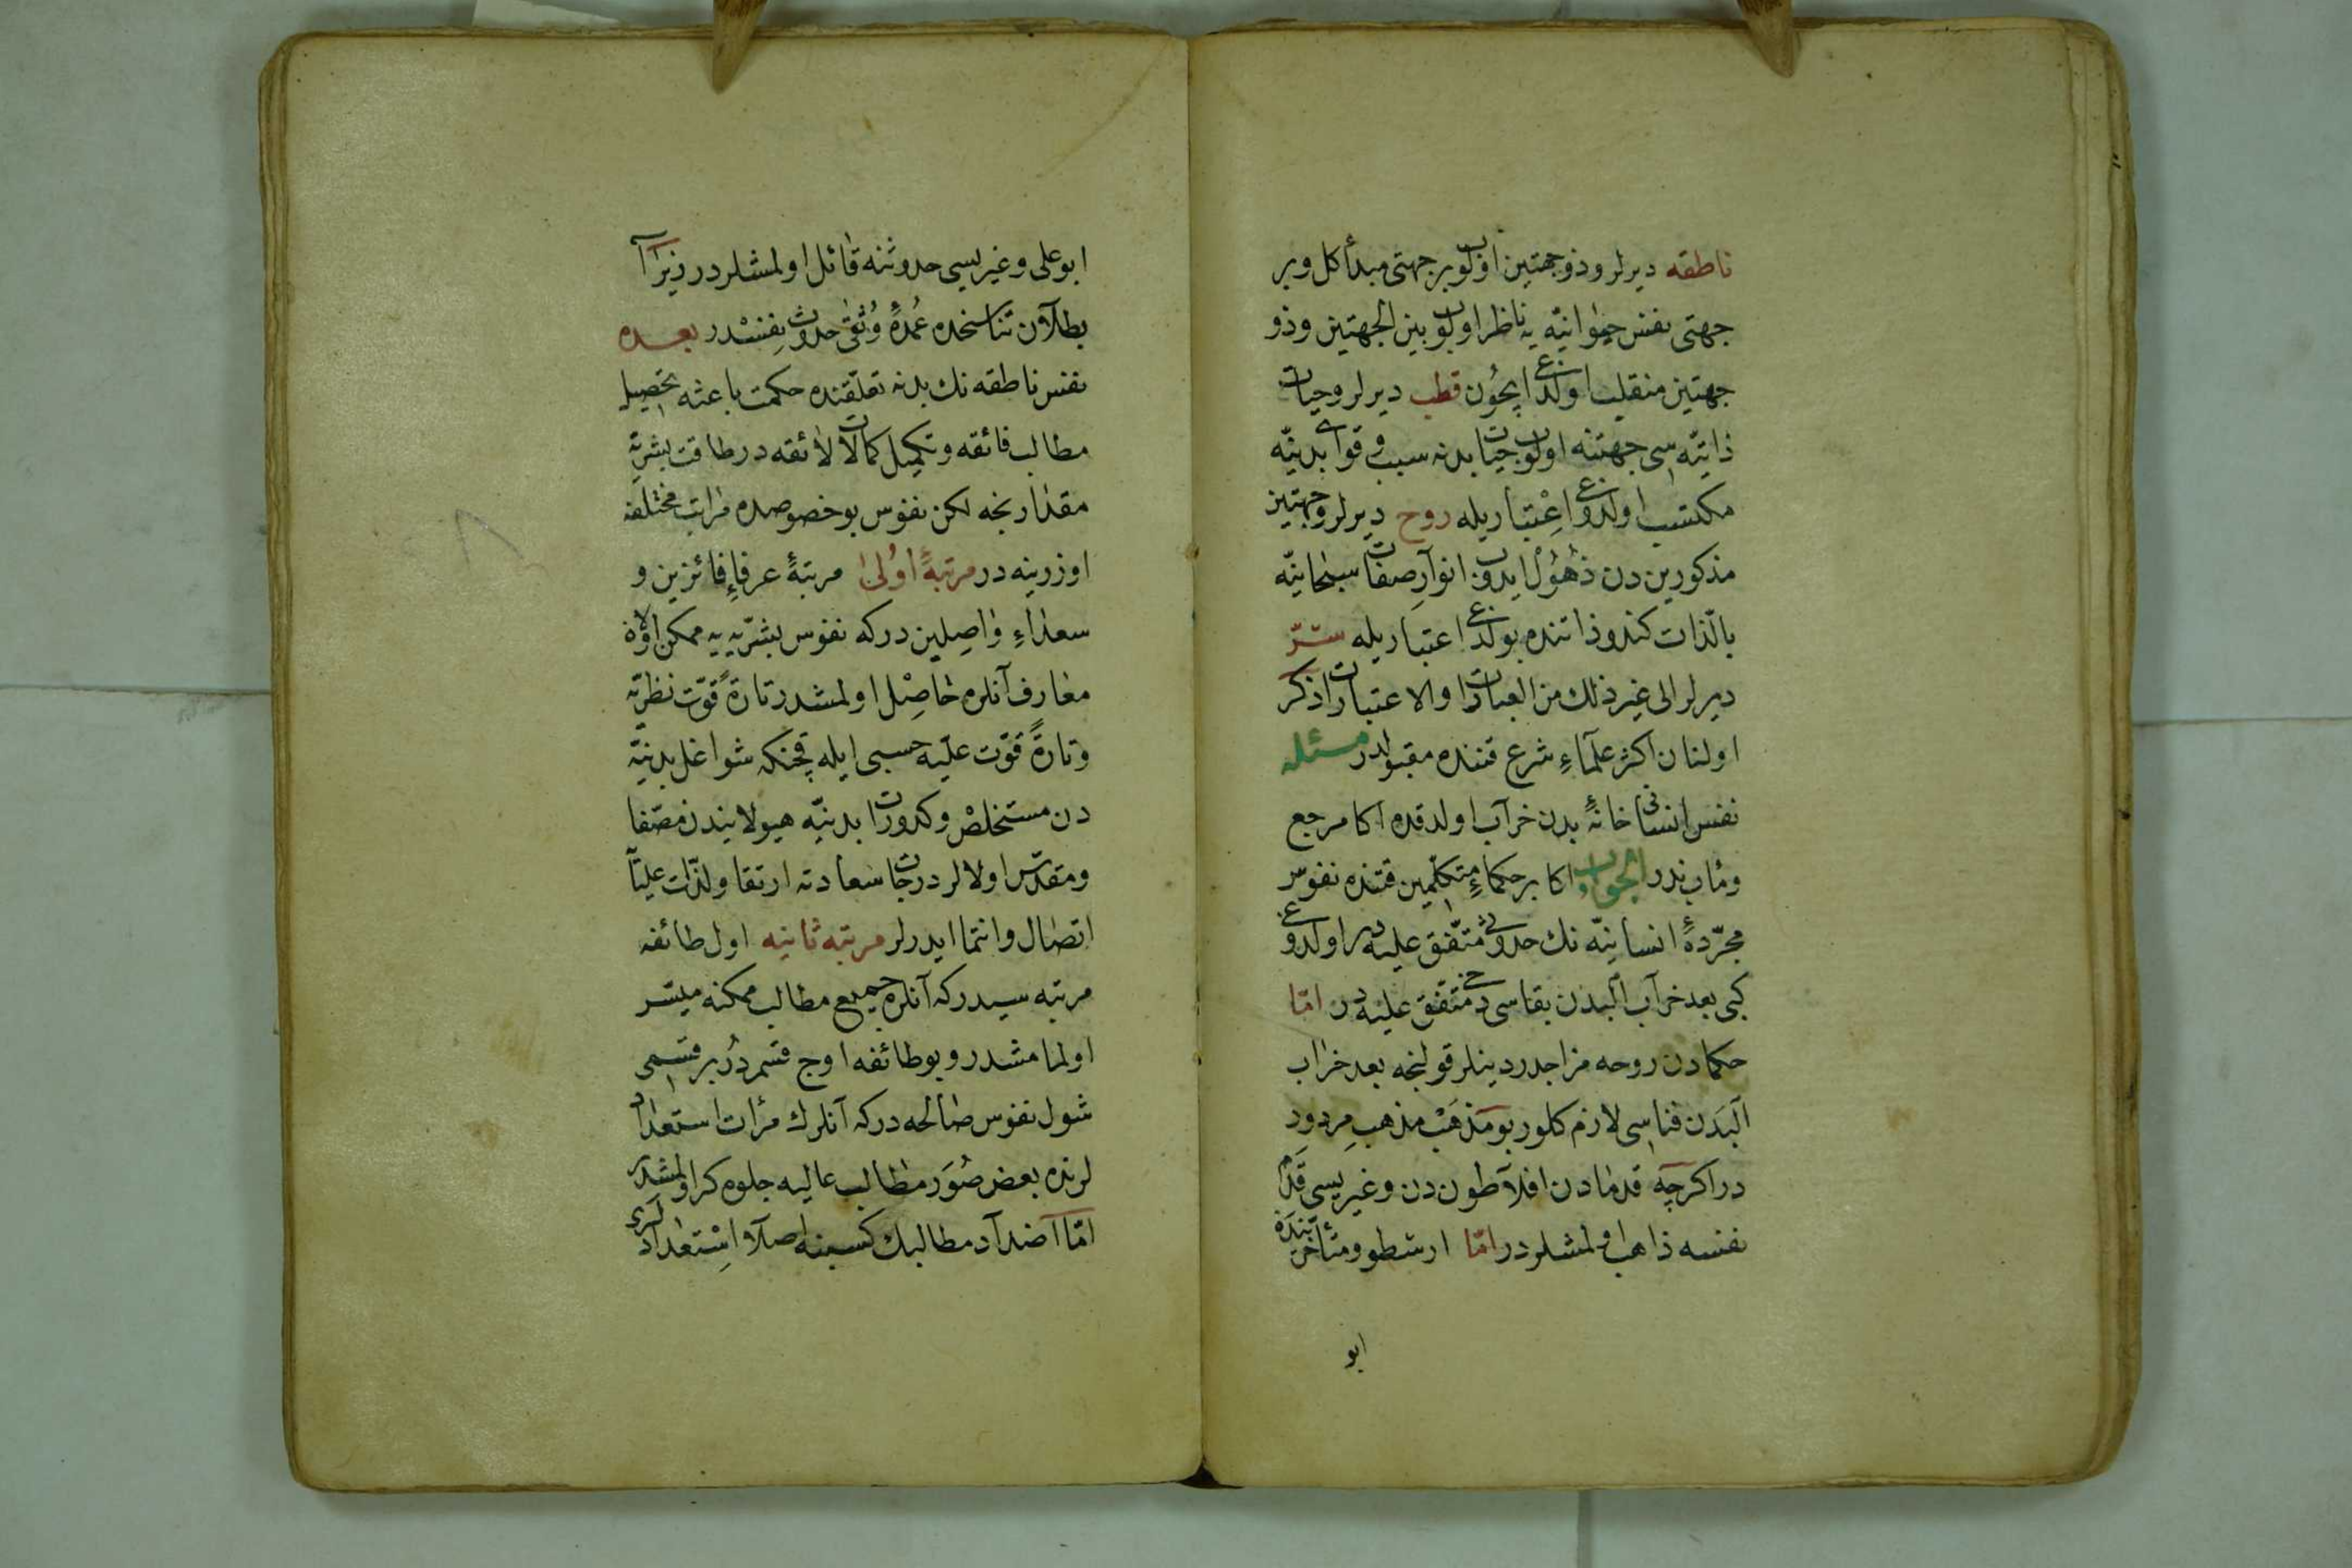 ناطقه ديرلر وذوجهتين اولوب بر جهتى مبدأ كل وبر
جهتى نفس حيوانيّه يه ناظر اولوب بين الجهتين وذو
جهتين منقلب اولدغى ايچون قطب ديرلر وحيات
ذاتيّه سى جهتنه اولوب حيات بدنه سبب وقواى بدنيّه
مكتسب اولدوغى اعتباريله روح ديرلر وجهتين
مذكورين دن ذهول ايدوب انوار صفات سبحانيّه
بالذّات كندو ذاتنده بولدغى اعتباريله سرّ
ديرلر الى غير ذلك من العبارات والاعتبارات ذكر
اولنان اكثر علماء شرع قتنده مقبولدر مسئله
نفس انسانى خانهٔ بدن خراب اولدقده اكا مرجع
ومأب ندر الجواب اكابر حكماء متكلّمين قتنده نفوس
مجرّدهٔ انسانيّه نك حدوثى متّفق عليه در اولدوغى
كبى بعد خراب البدن بقاسى دخى متّفق عليه در امّا
حكمادن روحه مزاجدر دينلر قولنجه بعد خراب
البدن فناسى لازم كلور بو مذهب مذهب مردود
در اكرچه قدمادن افلاطون دن وغيريسى قدم
نفسه ذاهب اولمشلردر امّا ارسطو ومتأخّريندن
ابو
ابو على وغيريسى حدوثنه قائل اولمشلردر زيرا
بطلان تناسخده عمدهٔ وثقى حدوث نفسدر بعده
نفس ناطقه نك بدنه تعلّقنده حكمت باعثه تحصيل
مطالب فائقه وتكميل كمالات لائقه در طاقت بشريّه
مقدارنجه لكن نفوس بو خصوصده مراتب مختلفه
اوزرينه در مرتبهٔ اولى مرتبهٔ عرفاء فائزين و
سعداء واصلين دركه نفوس بشريّه يه ممكن اولان
معارف آنلره حاصل اولمشدر تارةً قوّت نظريّه
وتارةً قوّت عمليّه حسبى ايله قچنكه شواغل بدنيّه
دن مستخلص وكدورات بدنيّه هيولانيدن مصفّا
ومقدّس اولالر درجات سعادته ارتقا ولذّات عليّا
اتصال وانتما ايدرلر مرتبه ثانيه اول طائفه
مرتبه سيدركه آنلره جميع مطالب ممكنه ميسّر
اولمامشدر وبو طائفه اوچ قسمدر بر قسمى
شول نفوس صالحه دركه آنلرك مرأت استعداد
لرنده بعض صور مطالب عاليه جلوه كر اولمشدر
امّا اضداد مطالبك كسبنه اصلا استعدادلرى